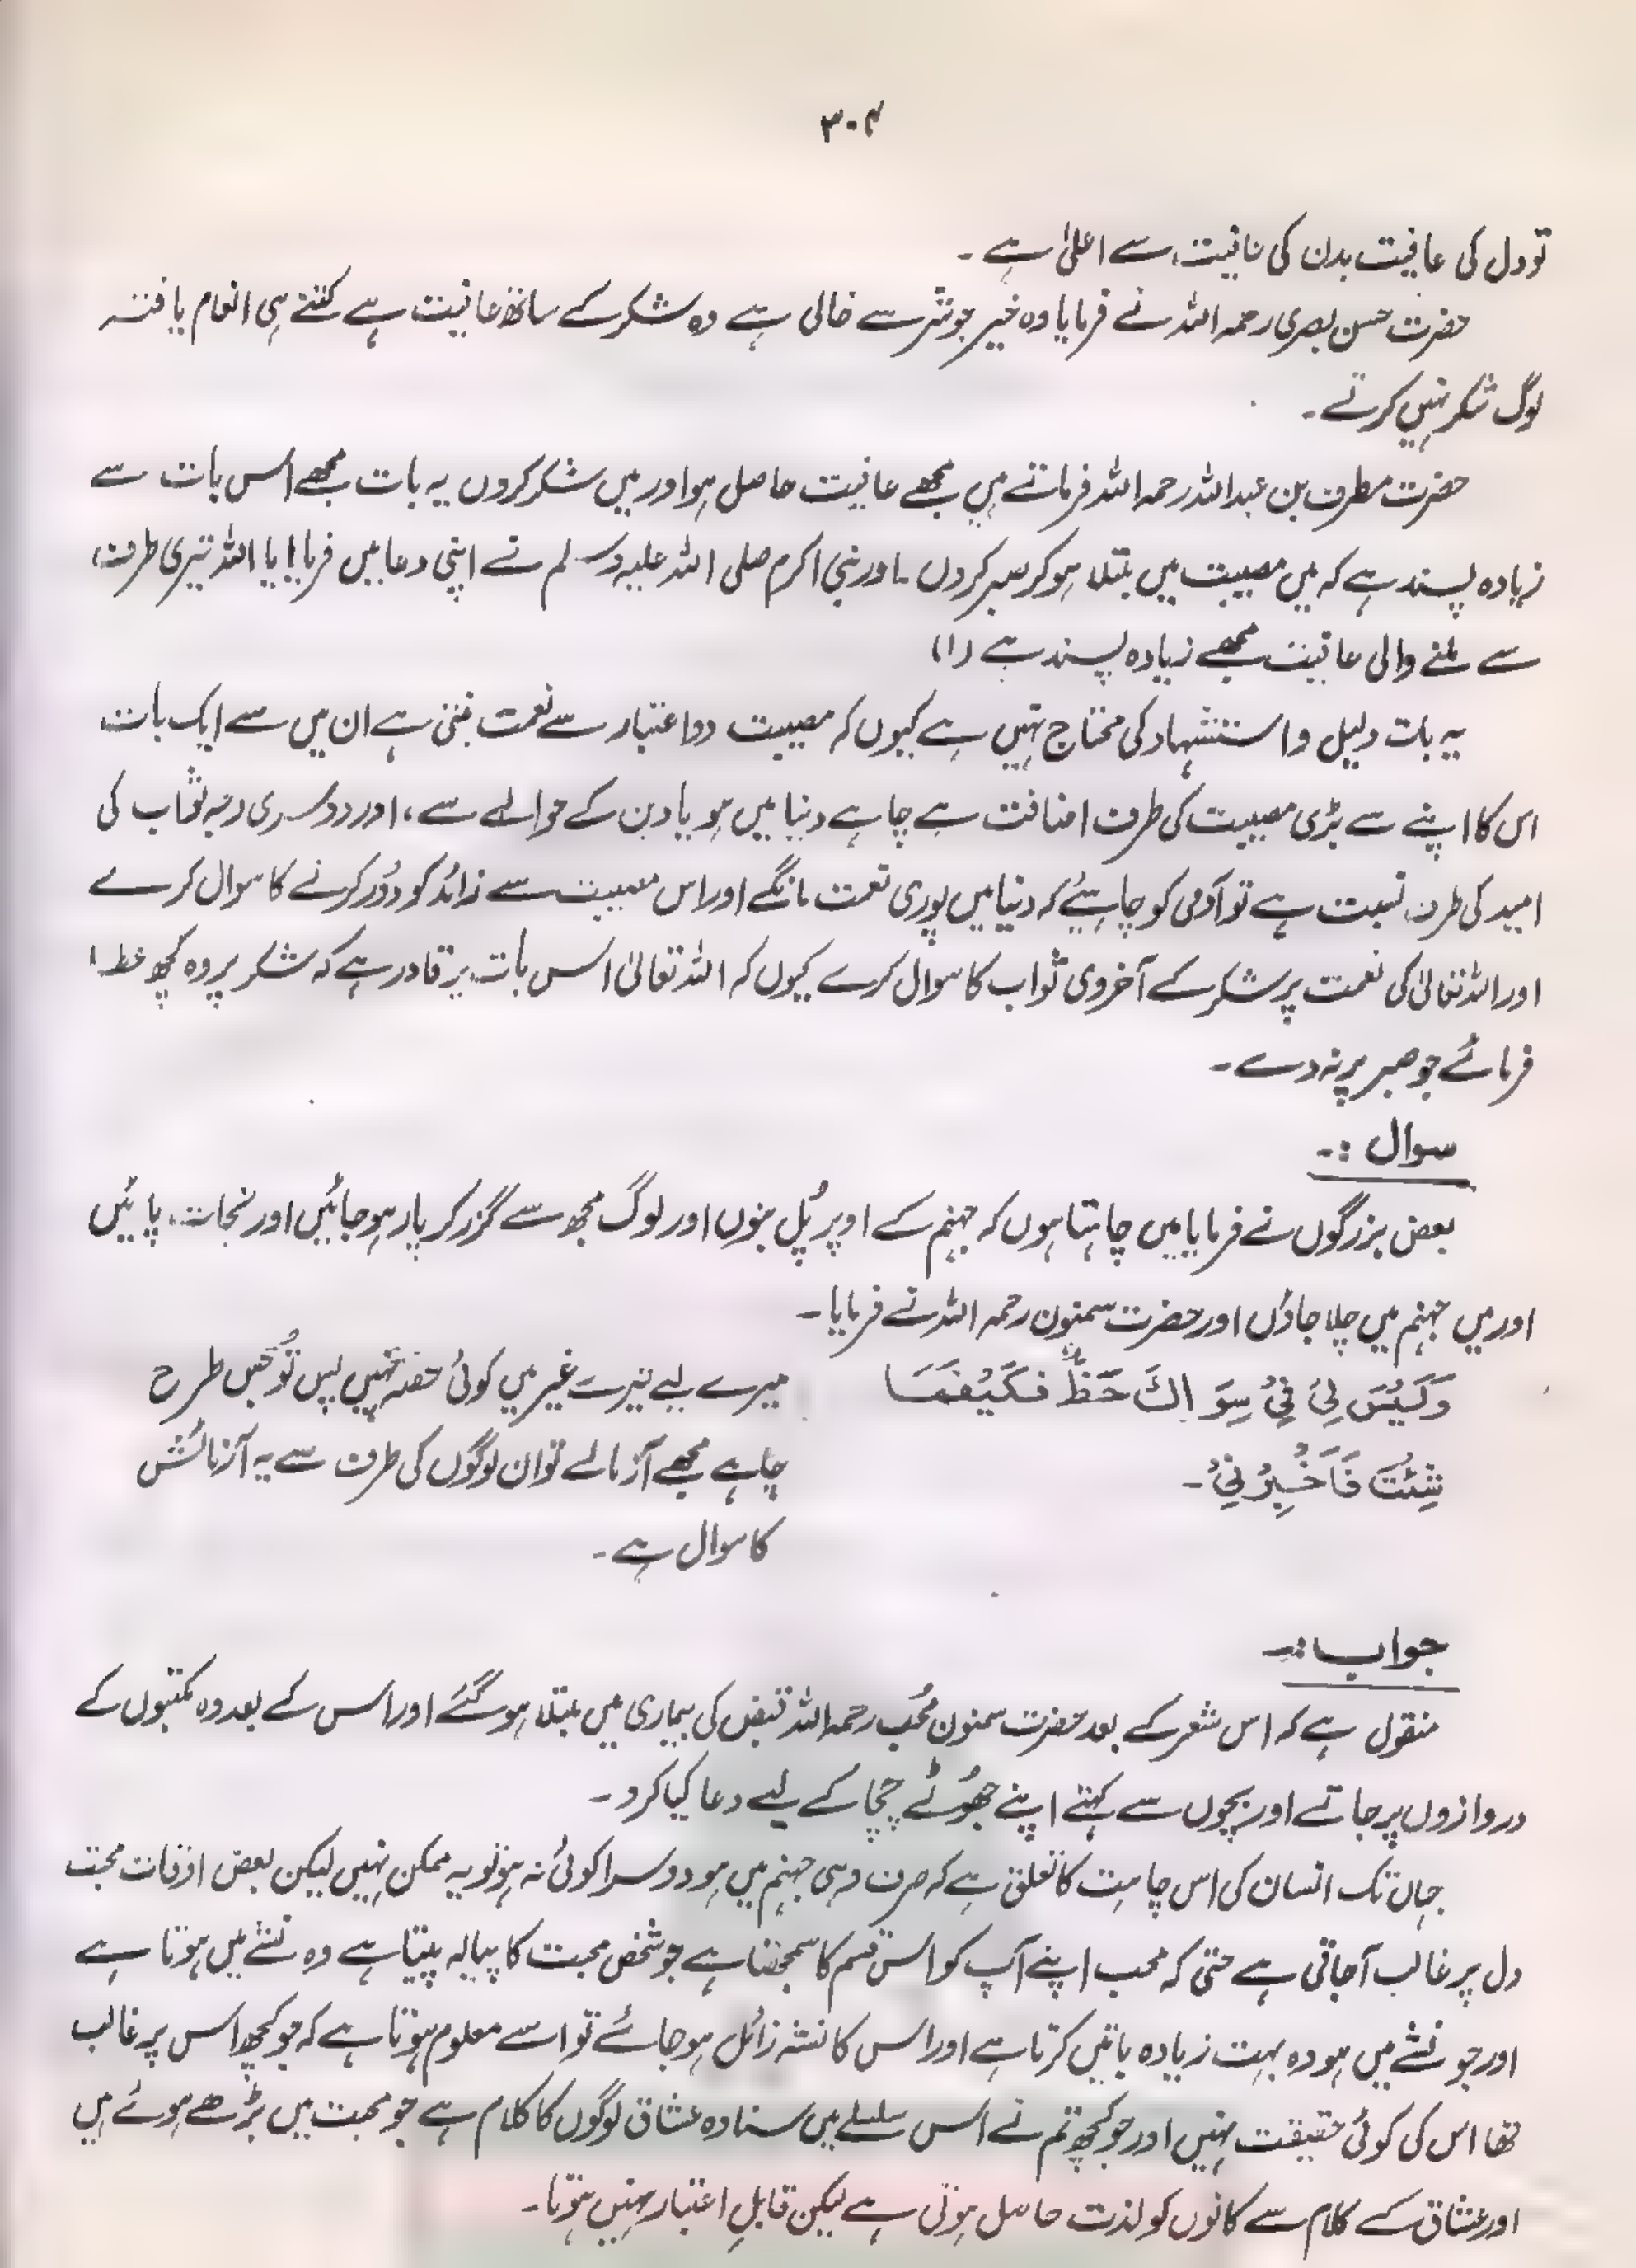 ۳۰۴
تو دل کی عافیت بدن کی عافیت سے اعلیٰ ہے ۔
حضرت حسن بصری رحمہ اللہ نے فرمایا وہ خیر جو شر سے خالی ہے وہ شکر کے ساتھ عافیت ہے کتنے ہی انعام یافتہ
لوگ شکر نہیں کرتے ۔
حضرت مطرف بن عبداللہ رحمہ اللہ فرماتے ہیں مجھے عافیت حاصل ہو اور میں شکر کروں یہ بات مجھے اس بات سے
زیادہ پسند ہے کہ میں مصیبت میں مبتلا ہو کر صبر کروں ۔ اور نبی اکرم صلی اللہ علیہ وسلم نے اپنی دعا میں فرمایا یا اللہ تیری طرف
سے ملنے والی عافیت مجھے زیادہ پسند ہے (۱)
یہ بات دلیل و استشہاد کی محتاج نہیں ہے کیوں کہ مصیبت دو اعتبار سے نعمت بنتی ہے ان میں سے ایک بات
اس کا اپنے سے بڑی مصیبت کی طرف اضافت ہے چاہے دنیا میں ہو یا دین کے حوالے سے ، اور دوسری وجہ ثواب کی
امید کی طرف نسبت ہے تو آدمی کو چاہیئے کہ دنیا میں پوری نعمت مانگے اور اس مصیبت سے زائد کو دُور کرنے کا سوال کرے
اور اللہ تعالیٰ کی نعمت پر شکر کے آخروی ثواب کا سوال کرے کیوں کہ اللہ تعالیٰ اس بات پر قادر ہے کہ شکر پر وہ کچھ عطا
فرمائے جو صبر پر نہ دے ۔
سوال :۔
بعض بزرگوں نے فرمایا میں چاہتا ہوں کہ جہنم کے اوپر پُل بنوں اور لوگ مجھ سے گزر کر پار ہو جائیں اور نجات پائیں
اور میں جہنم میں چلا جاؤں اور حضرت سمنون رحمہ اللہ نے فرمایا ۔
وَلَيْسَ لِيْ فِيْ سِوَاكَ حَظٌّ فَكَيْفَمَا
شِئْتَ فَاخْبِرْنِيْ ۔
میرے لیے تیرے غیر میں کوئی حصہ نہیں پس تُو جس طرح
چاہے مجھے آزمالے تو ان لوگوں کی طرف سے یہ آزمائش
کا سوال ہے ۔
جواب :۔
منقول ہے کہ اس شعر کے بعد حضرت سمنون محُب رحمہ اللہ قبض کی بیماری میں مبتلا ہو گئے اور اس کے بعد وہ مکتبوں کے
دروازوں پر جاتے اور بچوں سے کہتے اپنے جھُوٹے چچا کے لیے دعا کیا کرو ۔
جہاں تک انسان کی اس چاہت کا تعلق ہے کہ صرف وہی جہنم میں ہو دوسرا کوئی نہ ہو تو یہ ممکن نہیں لیکن بعض اوقات محبت
دل پر غالب آجاتی ہے حتیٰ کہ محب اپنے آپ کو اس قسم کا سمجھتا ہے جو شخص محبت کا پیالہ پیتا ہے وہ نشے میں ہوتا ہے
اور جو نشے میں ہو وہ بہت زیادہ باتیں کرتا ہے اور اس کا نشہ زائل ہو جائے تو اسے معلوم ہوتا ہے کہ جو کچھ اس پر غالب
تھا اس کی کوئی حقیقت نہیں اور جو کچھ تم نے اس سلسلے میں سنا وہ عشاق لوگوں کا کلام ہے جو محبت میں بڑھے ہوئے ہیں
اور عشاق کے کلام سے کانوں کو لذت حاصل ہوتی ہے لیکن قابلِ اعتبار نہیں ہوتا ۔